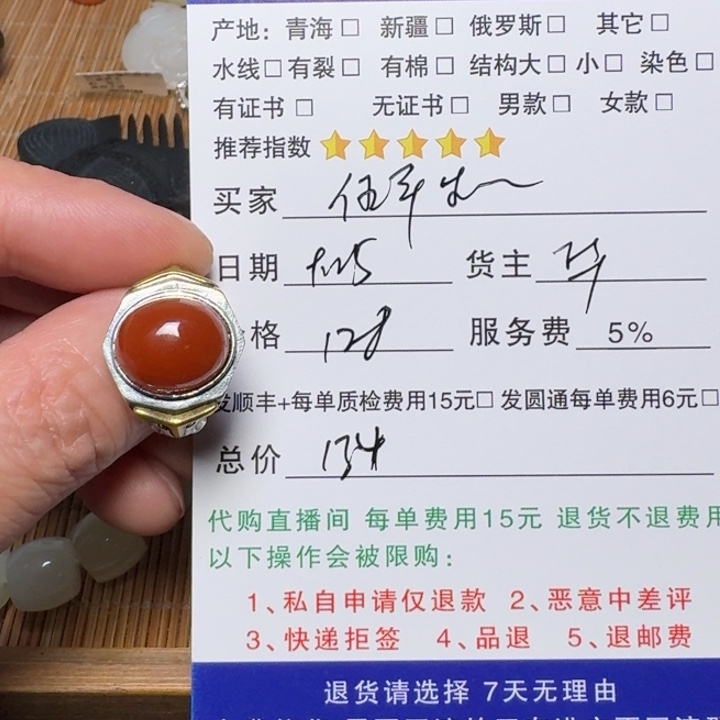 产地：青海□ 新疆□ 俄罗斯□ 其它□
水线□有裂□ 有棉□ 结构大□ 小□ 染色□
有证书□ 无证书□ 男款□ 女款□
推荐指数
买家
日期 货主
格 128 服务费 5%
发顺丰+每单质检费用15元□ 发圆通每单费用6元□
总价 134
代购直播间 每单费用15元 退货不退费用
以下操作会被限购：
1、私自申请仅退款 2、恶意中差评
3、快递拒签 4、品退 5、退邮费
退货请选择 7天无理由